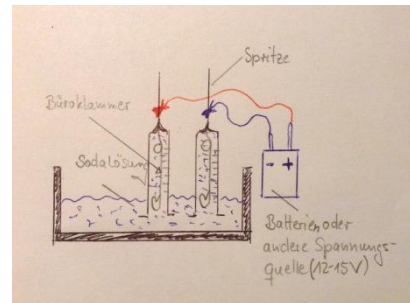 Spritze
Büroklammer
Sodalösung
- +
Batterien oder
andere Spannungs-
quelle (12-15V)